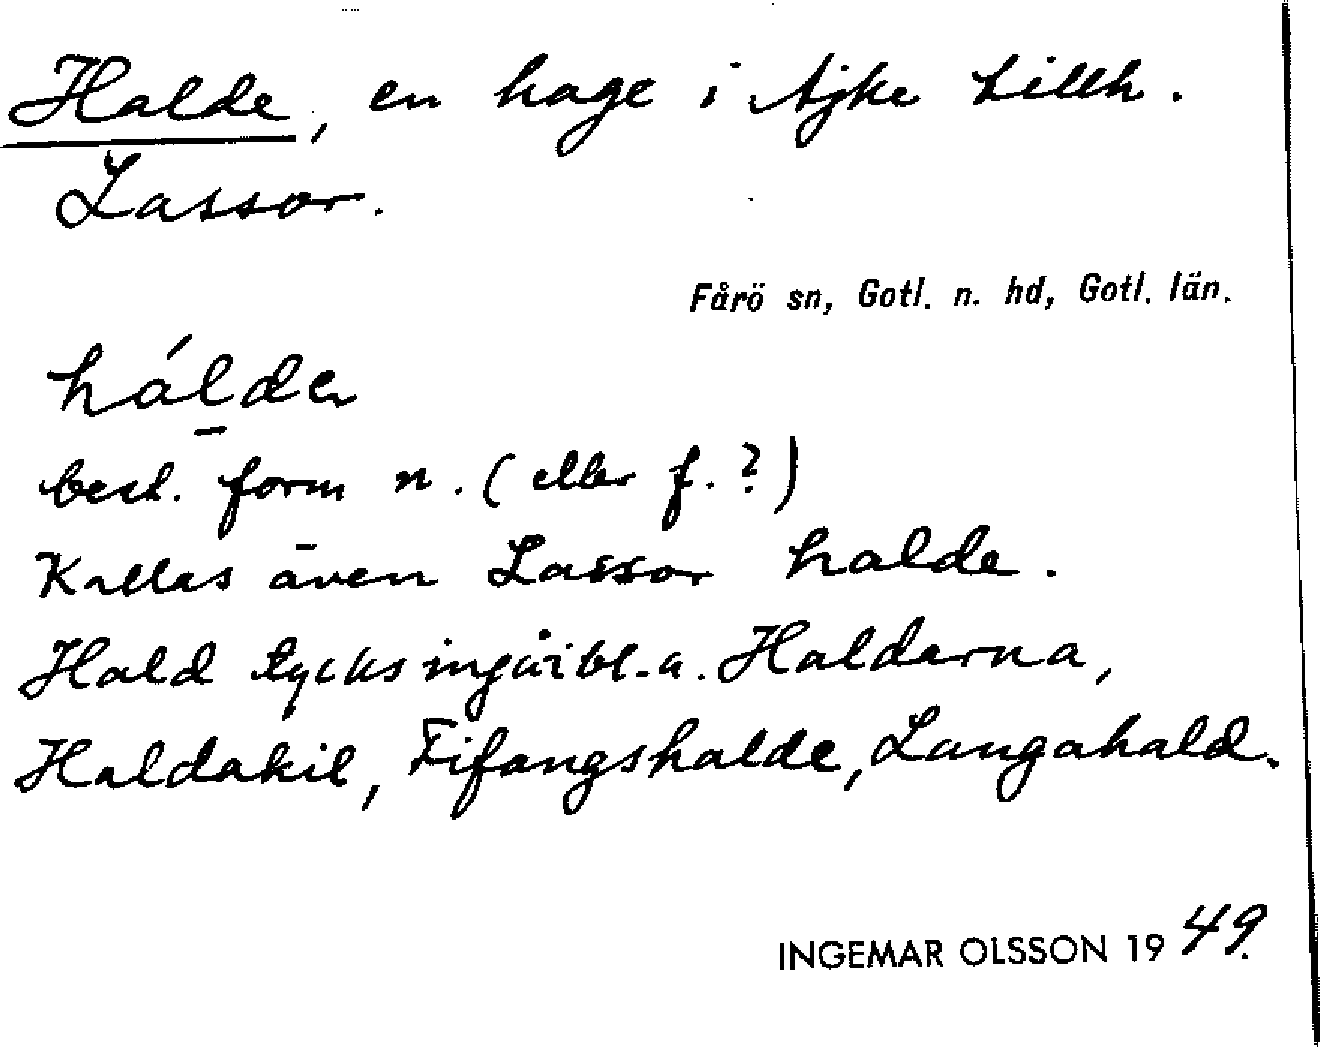 Halde, en hage i Ajke tillh.
Lassor.
Fårö sn, Gotl. n. hd, Gotl. län.
hálde
best. form n. (eller f.?)
Kallas även Lassor halde.
Hald tycks ingå i bl.a. Haldarna,
Haldakil, Fifangshalde, Langahald.
INGEMAR OLSSON 1949.